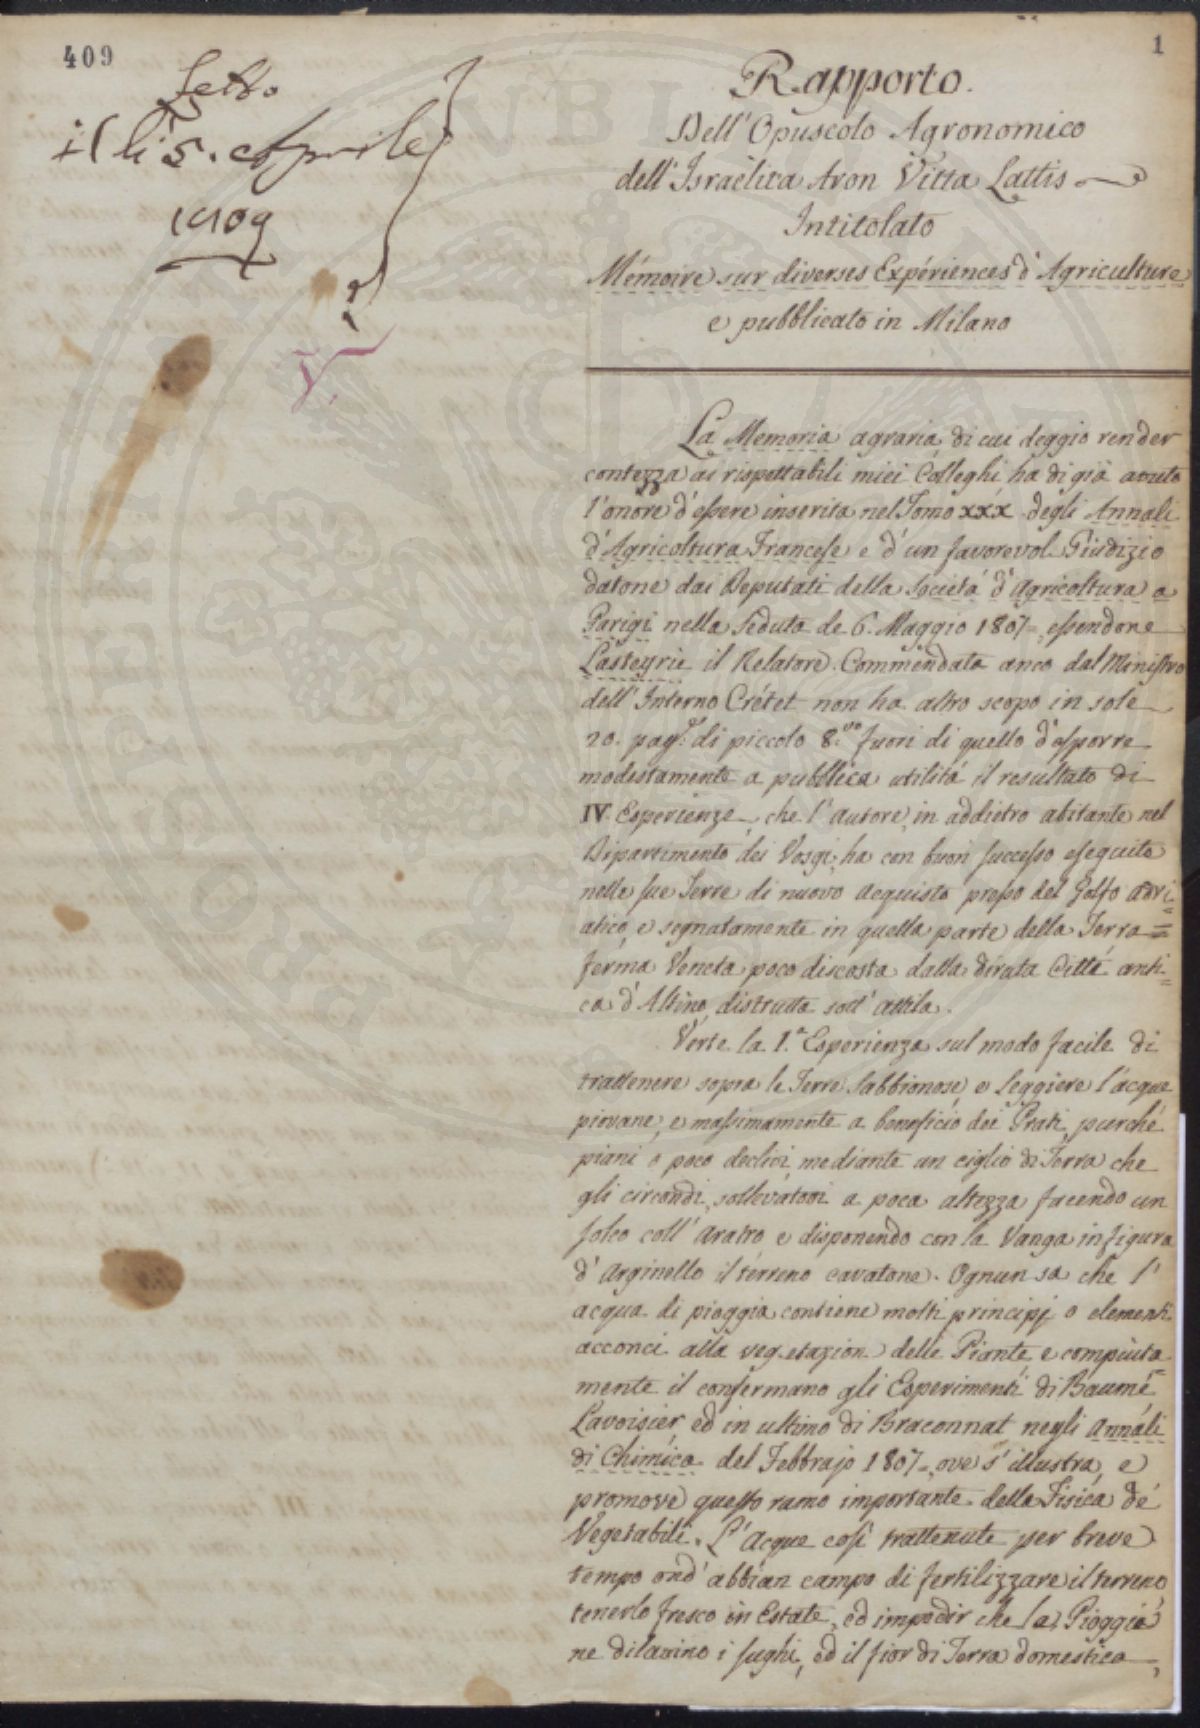 409
1
Letto
il dì 5. Aprile
1809
Rapporto.
Dell'Opuscolo Agronomico
dell'Israèlita Aron Vitta Lattis
Intitolato
Mémoire sur diverses Expériences d'Agriculture
e pubblicato in Milano
V.
La Memoria agraria di cui deggio render
contezza ai rispettabili miei Colleghi ha di già avuto
l'onore d'essere inserita nel Tomo XXX degli Annali
d'Agricoltura Francese e d'un favorevol Giudizio
datone dai Deputati della Società d'Agricoltura a
Parigi nella Seduta de 6. Maggio 1807=, essendone
Lasteyrie il Relatore. Commendata anco dal Ministro
dell'Interno Crétet non ha altro scopo in sole
20. pag.e di piccolo 8.vo fuori di quello d'esporre
modestamente a pubblica utilità il resultato di
IV. Esperienze, che l'autore, in addietro abitante nel
Dipartimento dei Vosgi, ha con buon successo eseguito
nelle sue Terre di nuovo acquisto presso del Golfo adri=
atico, e segnatamente in quella parte della Terra=
ferma Veneta poco discosta dalla dirata Città anti=
ca d'Altino, distrutta sott'Attila.
Verte la 1.a Esperienza sul modo facile di
trattenere sopra le Terre Sabbionose, e Leggiere l'acque
piovane, e massimamente a beneficio dei Prati, purchè
piani o poco declivi, mediante un ciglio di Terra che
gli circondi, sollevatovi a poca altezza facendo un
solco coll'aratro e disponendo con la Vanga in figura
d'Arginello il terreno cavatone. Ognun sa che l'
acqua di pioggia contiene molti principj o elementi
acconci alla vegetazion delle Piante, e compiuta=
mente il confermano gli Esperimenti di Baumé
Lavoisier, ed in ultimo di Braconnat negli Annali
di Chimica del Febbrajo 1807=, ove s'illustra, e
promove questo ramo importante della Fisica de'
Vegetabili. L'Acque così trattenute per breve
tempo ond'abbian campo di fertilizzare il terreno,
tenerlo fresco in Estate, ed impedir che la Pioggia
ne dilavino i sughi, ed il fior di Terra domestica,